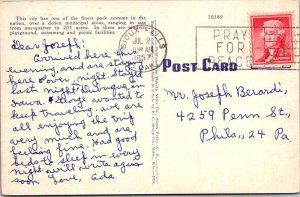 This city has one of the finest park systems in the
nation, over a dozen municipal areas, ranging in size
from one-quarter to 203 acres. In them are
playground, swimming and picnic facilities.
26389
SIOUX FALLS
PRAY
FOR
PEACE
2¢
POST CARD
Dear Joseph:
Arrived here
evening and are staying
here over night. Stayed
last night Dubuque in
Iowa. George wanted to
keep traveling. We are
all enjoying the trip
very much and are
feeling fine. Had good
beds to sleep in every
night. Will write again
soon Love, Ada
Mr. Joseph Berardi
4259 Penn St.,
Phila., 24 Pa